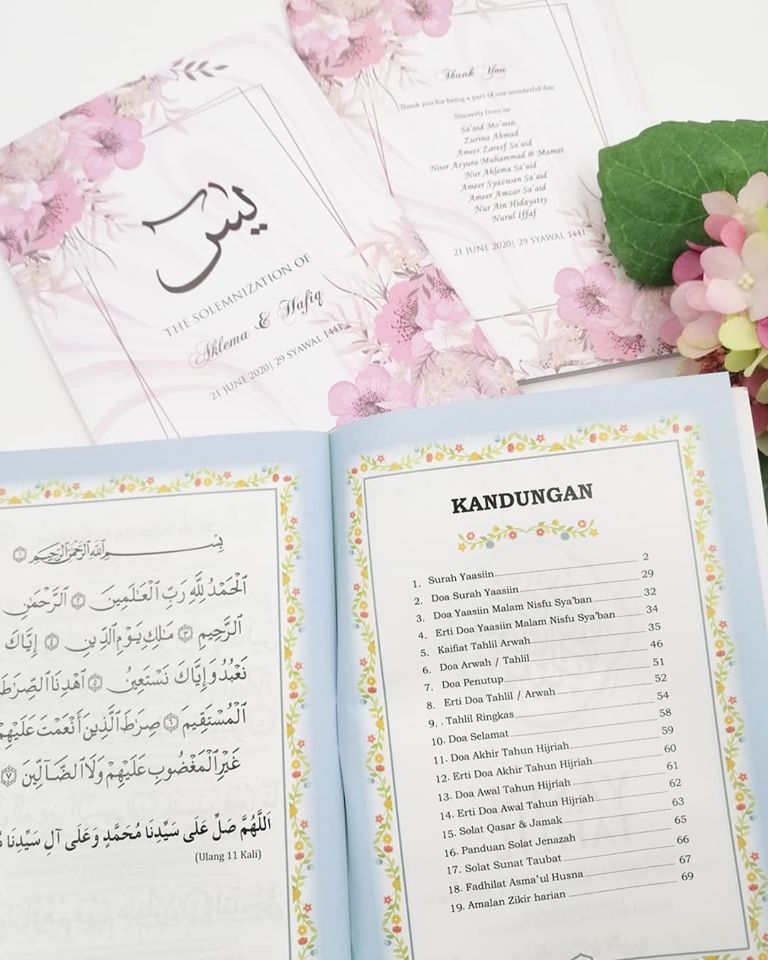 يس
THE SOLEMNIZATION OF
Aklema & Hafiq
21 JUNE 2020| 29 SYAWAL 1441
Thank You
Thank you for being a part of our wonderful day.
Sincerely from us
Sa'aid Mo'min
Zurina Ahmad
Ameer Zareef Sa'aid
Noor Azyura Muhammad @ Mamat
Nur Aklema Sa'aid
Ameer Syazwan Sa'aid
Ameer Amzar Sa'aid
Nur Ain Hidayatiy
Nurul Iffaf
21 JUNE 2020| 29 SYAWAL 1441
بِسْمِ ٱللَّهِ ٱلرَّحْمَٰنِ ٱلرَّحِيمِ ١
ٱلْحَمْدُ لِلَّهِ رَبِّ ٱلْعَٰلَمِينَ ٢ ٱلرَّحْمَٰنِ
ٱلرَّحِيمِ ٣ مَٰلِكِ يَوْمِ ٱلدِّينِ ٤ إِيَّاكَ
نَعْبُدُ وَإِيَّاكَ نَسْتَعِينُ ٥ ٱهْدِنَا ٱلصِّرَٰطَ
ٱلْمُسْتَقِيمَ ٦ صِرَٰطَ ٱلَّذِينَ أَنْعَمْتَ عَلَيْهِمْ
غَيْرِ ٱلْمَغْضُوبِ عَلَيْهِمْ وَلَا ٱلضَّآلِّينَ ٧
اَللَّهُمَّ صَلِّ عَلَى سَيِّدِنَا مُحَمَّدٍ وَعَلَى آلِ سَيِّدِنَا
(Ulang 11 Kali)
KANDUNGAN
1. Surah Yaasiin 2
2. Doa Surah Yaasiin 29
3. Doa Yaasiin Malam Nisfu Sya'ban 32
4. Erti Doa Yaasiin Malam Nisfu Sya'ban 34
5. Kaifiat Tahlil Arwah 35
6. Doa Arwah / Tahlil 46
7. Doa Penutup 51
8. Erti Doa Tahlil / Arwah 52
9. . Tahlil Ringkas 54
10. Doa Selamat 58
11. Doa Akhir Tahun Hijriah 59
12. Erti Doa Akhir Tahun Hijriah 60
13. Doa Awal Tahun Hijriah 61
14. Erti Doa Awal Tahun Hijriah 62
15. Solat Qasar & Jamak 63
16. Panduan Solat Jenazah 65
17. Solat Sunat Taubat 66
18. Fadhilat Asma'ul Husna 67
19. Amalan Zikir harian 69